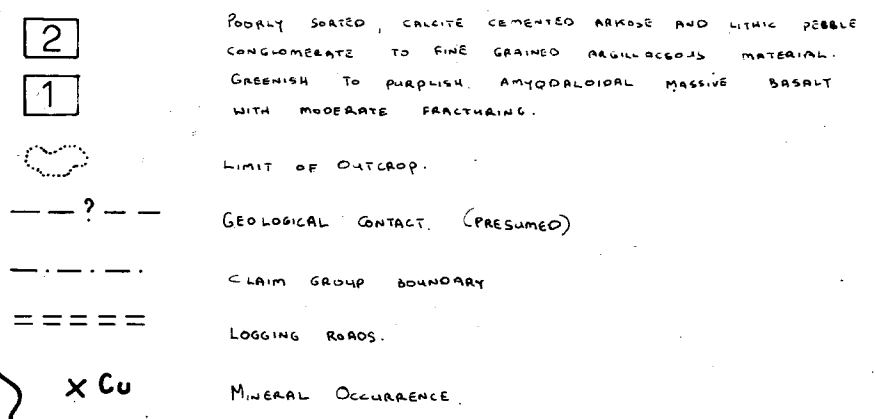 2 POORLY SORTED, CALCITE CEMENTED ARKOSE AND LITHIC PEBBLE
CONGLOMERATE TO FINE GRAINED ARGILLACEOUS MATERIAL.
1 GREENISH TO PURPLISH AMYGDALOIDAL MASSIVE BASALT
WITH MODERATE FRACTURING.
LIMIT OF OUTCROP.
? GEOLOGICAL CONTACT. (PRESUMED)
CLAIM GROUP BOUNDARY
LOGGING ROADS.
X Cu MINERAL OCCURRENCE.